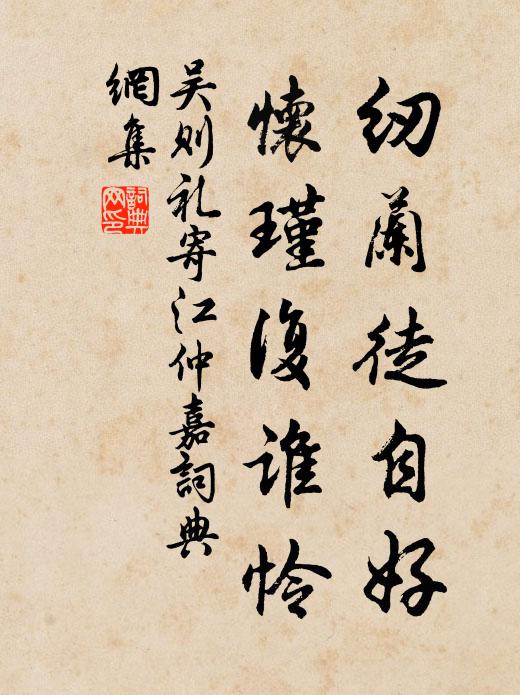 纫蘭徒自好
懷瑾復誰怜
吴则礼寄江仲嘉詞典
網集
詞典
网印